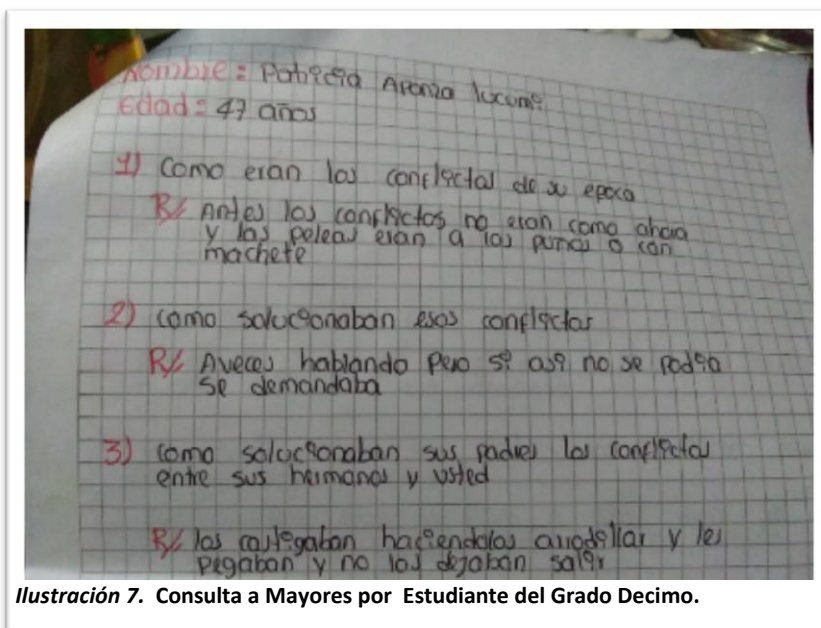 Nombre: Patricia Aponza lucumi
Edad: 47 años
1) Como eran los conflictos de su epoca
R/ Antes los conflictos no eran como ahora
y las peleas eran a los punos o con
machete
2) como solucionaban esos conflictos
R/ Aveces hablando pero si asi no se podia
se demandaba
3) como solucionaban sus padres los conflictos
entre sus hermanos y usted
R/ los castigaban haciendolos arrodillar y les
pegaban y no los dejaban salir
Ilustración 7. Consulta a Mayores por Estudiante del Grado Decimo.